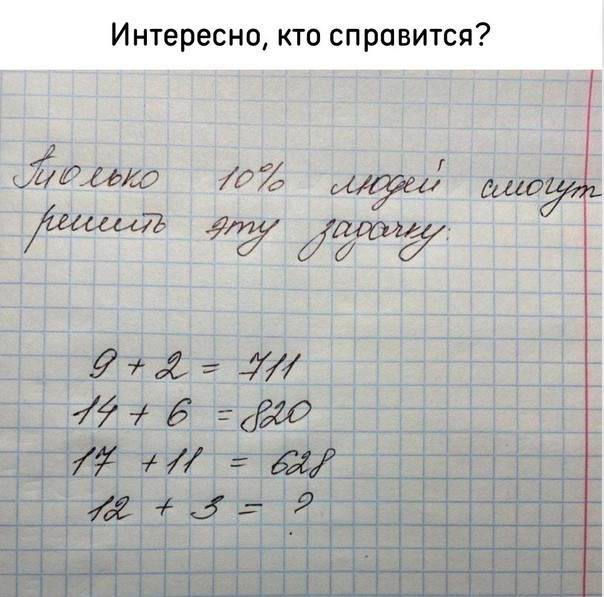 Интересно, кто справится?
Только 10% людей смогут
решить эту задачку:
9 + 2 = 711
14 + 6 = 820
17 + 11 = 628
12 + 3 = ?